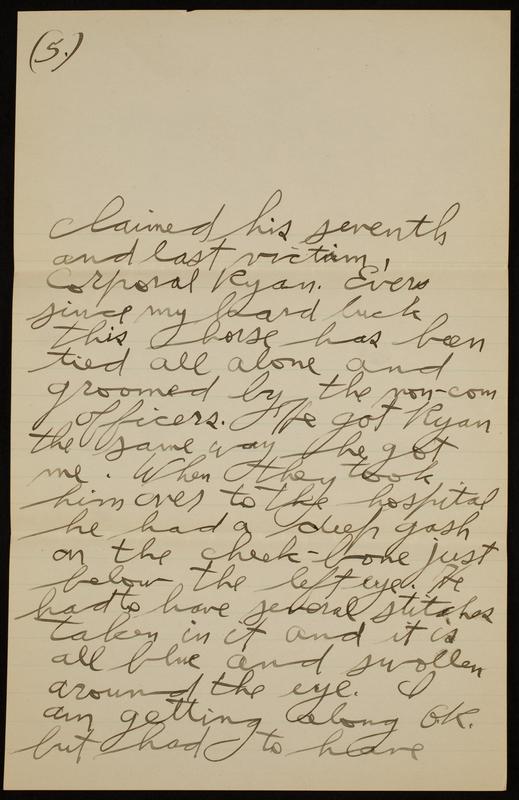 (5.)
claimed his seventh
and last victim,
Corporal Ryan. Ever
since my hard luck
this horse has been
tied all alone and
groomed by the non-com
officers. He got Ryan
the same way he got
me. When they took
him over to the hospital
he had a deep gash
on the cheek-bone just
below the left eye. He
had to have several stitches
taken in it and it is
all blue and swollen
around the eye. I
am getting along OK.
but had to have